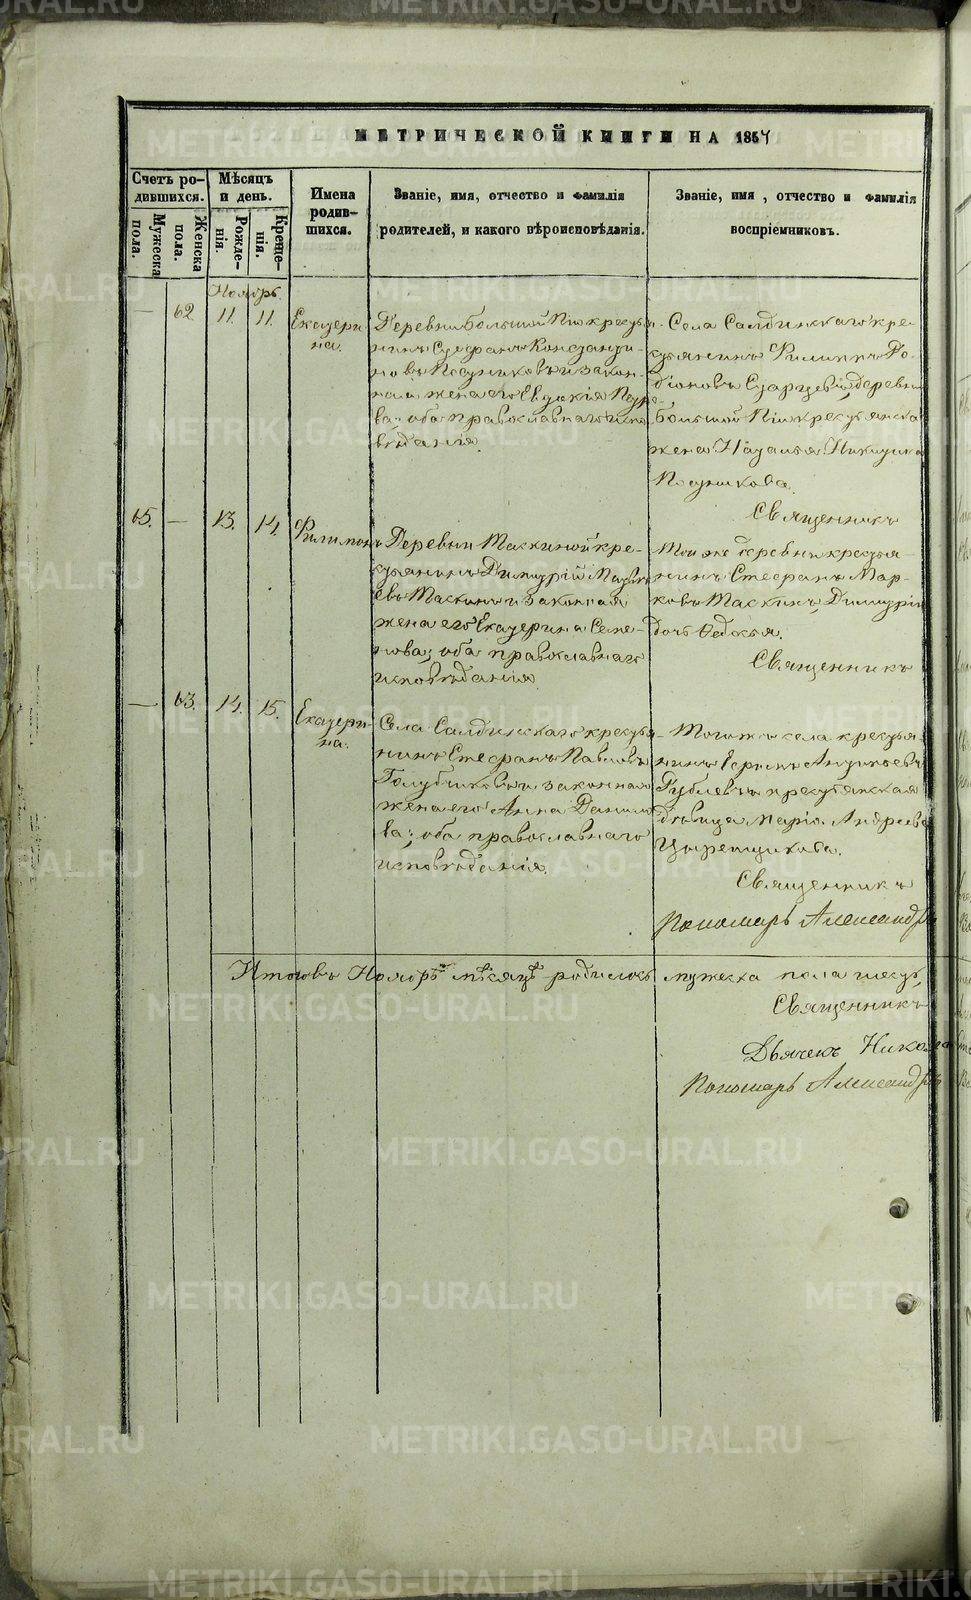 МЕТРИЧЕСКОЙ КНИГИ НА 1864
Счетъ ро-
дившихся.
Мужеска
пола.
Женска
пола.
Мѣсяцъ
и день.
Рожде-
нія.
Креще-
нія.
Имена
родив-
шихся.
Званіе, имя, отчество и фамилія
родителей, и какого вѣроисповѣданія.
Званіе, имя, отчество и фамилія
воспріемниковъ.
Ноябрь.
— 62 11. 11.
Екатери
на.
Деревни Большой крестья-
нинъ Стефанъ Константи-
новъ Постниковъ и закон-
ная жена его Евдокія Петро-
ва; оба православнаго испо
вѣданія.
Села Салдинскаго кре-
стьянинъ Филиппъ Ро-
діоновъ Старцевъ и деревни
Большой крестьянска
жена Наталья Никитина
Постникова.
Священникъ
65. — 13. 14.
Филимонъ
Деревни Маскиной кре-
стьянинъ Димитрій Матве
евъ Маскинъ и законная
жена его Екатерина Семе-
нова; оба православнаго
исповѣданія
Той же деревни крестья-
нинъ Стефанъ Мар-
ковъ Маскинъ, Димитрія
дочь Федосья.
Священникъ
— 63. 14. 15.
Екатери-
на.
Села Салдинскаго крестья-
нинъ Стефанъ Павловъ
Голубчиковъ и законная
жена его Анна Данило
ва; оба православнаго
исповѣданія.
Тогожъ села крестья-
нинъ Ефимъ
крестьянская
дѣвица Марія Андреева
Священникъ
Пономарь Александръ
Итого въ Ноябрѣ мѣсяцѣ родилось мужеска пола шесть,
Священникъ
Дьячекъ Никола
Пономарь Александръ
METRIKI.GASO-URAL.RU